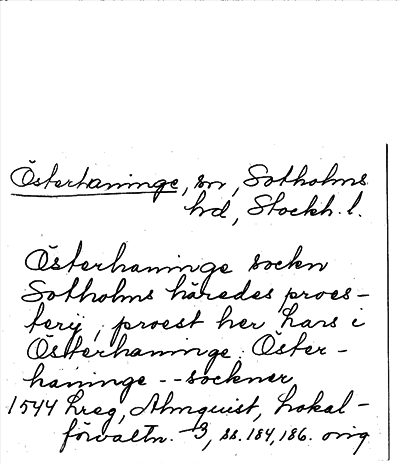 Österhaninge, sn, Sotholms
hd, Stockh. l.
Österhaninge sockn
Sotholms häredes proes-
terij, proest her Lars i
Österhaninge. Öster-
haninge -- sockner
1544 Lreg, Almquist, Lokal-
förvaltn. 3, ss. 184, 186. orig